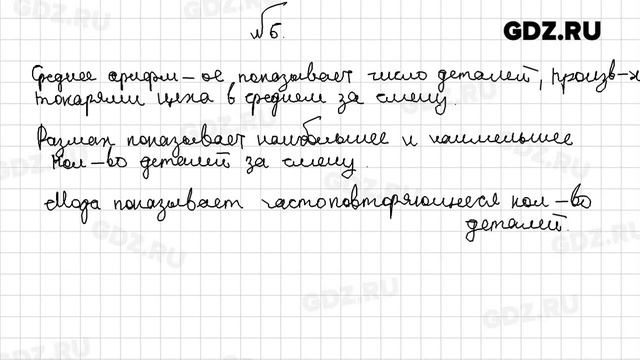 № 6.
GDZ.RU
Среднее арифм-ое показывает число деталей, произв-х
токарями цеха в среднем за смену.
Размах показывает наибольшее и наименьшее
кол-во деталей за смену.
Мода показывает частоповторяющееся кол-во
деталей.